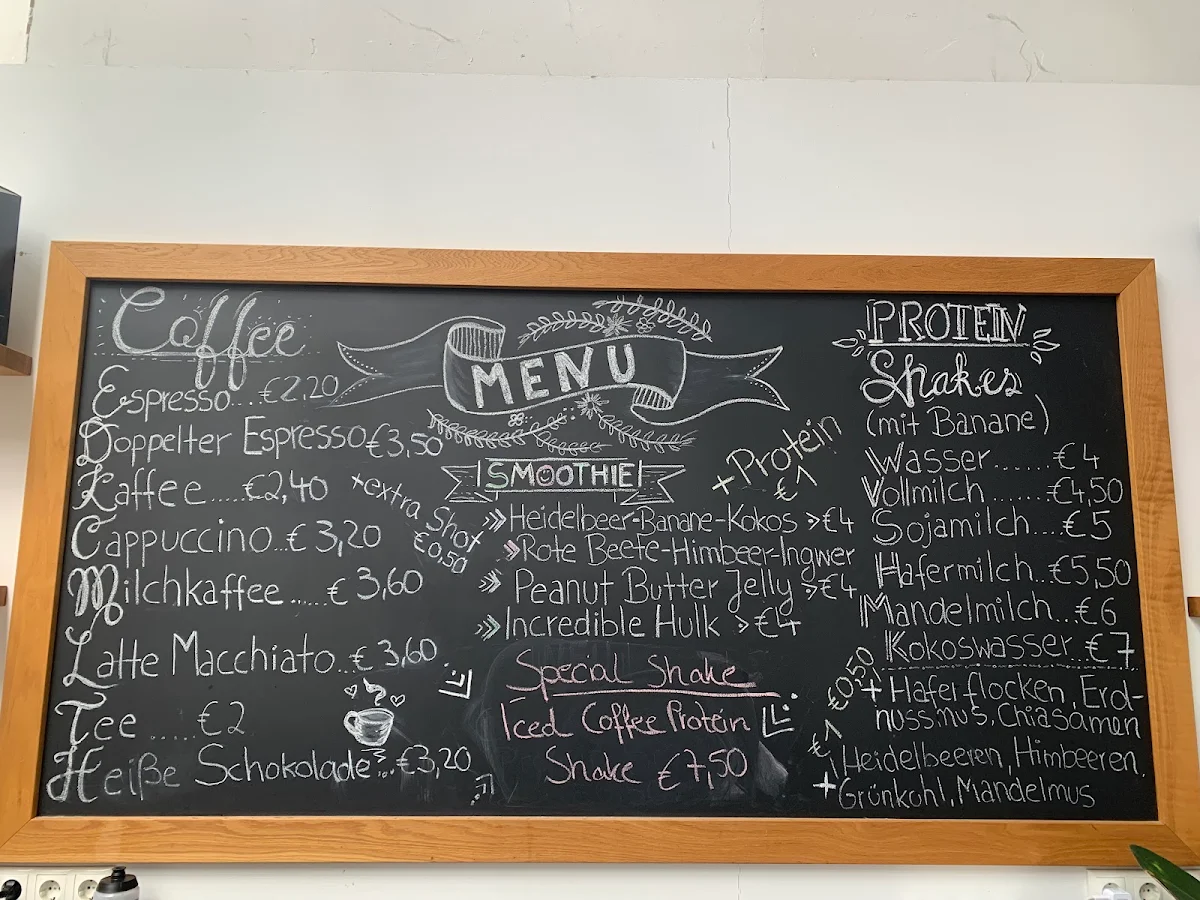 Coffee
Espresso...€2,20
Doppelter Espresso €3,50
Kaffee....€2,40
Cappuccino..€ 3,20
Milchkaffee.....€ 3,60
Latte Macchiato..€ 3,60
Tee ..... €2
Heiße Schokolade...€3,20
+extra Shot
€0,50
MENU
SMOOTHIE
+ Protein
€1
Heidelbeer-Banane-Kokos >€4
Rote Beete-Himbeer-Ingwer
Peanut Butter Jelly >€4
Incredible Hulk >€4
Special Shake
Iced Coffee Protein
Shake € 7,50
PROTEIN
Shakes
(mit Banane)
Wasser......€4
Vollmilch ......€4,50
Sojamilch...€5
Hafermilch..€5,50
Mandelmilch...€6
Kokoswasser...€7
€0,50
+ Haferflocken, Erd-
nussmus, Chiasamen
€1
Heidelbeeren, Himbeeren,
+ Grünkohl, Mandelmus